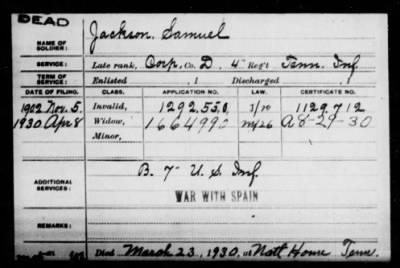 DEAD
NAME OF SOLDIER: Jackson, Samuel
SERVICE: Late rank, Corp, Co. D, 4" Reg't Tenn. Inf
TERM OF SERVICE: Enlisted , 1 Discharged , 1
DATE OF FILING. CLASS. APPLICATION NO. LAW. CERTIFICATE NO.
1902 Nov. 5. Invalid, 1,292,550, 1129,712
1930 Apr 8 Widow, 1664990 A8-29-30
Minor,
ADDITIONAL SERVICES: B. 7" U.S. Inf.
WAR WITH SPAIN
REMARKS:
Died March 23, 1930, at Natl Home Tenn.